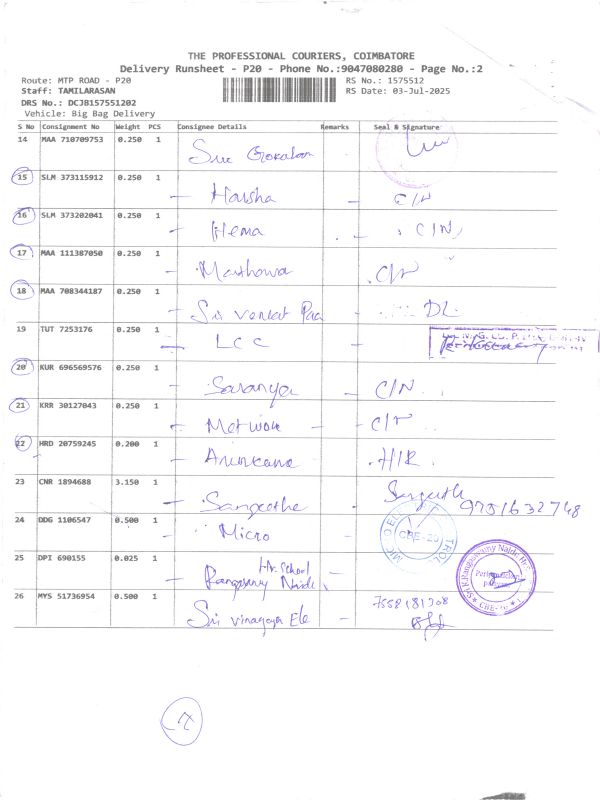 THE PROFESSIONAL COURIERS, COIMBATORE
Delivery Runsheet - P20 - Phone No.:9047080280 - Page No.:2
Route: MTP ROAD - P20 RS No.: 1575512
Staff: TAMILARASAN RS Date: 03-Jul-2025
DRS No.: DCJB157551202
Vehicle: Big Bag Delivery
S No Consignment No Weight PCS Consignee Details Remarks Seal & Signature
14 MAA 710709753 0.250 1
Sree Gokulam
15 SLM 373115912 0.250 1
Harsha - C/N
16 SLM 373202041 0.250 1
Hema - C/N
17 MAA 111387050 0.250 1
C/N
18 MAA 708344187 0.250 1
Sri Venkat - DL
19 TUT 7253176 0.250 1
LCC
20 KUR 696569576 0.250 1
Saranya C/N
21 KRR 30127043 0.250 1
- C/N
22 HRD 20759245 0.200 1
23 CNR 1894688 3.150 1
Sangeetha - Sangeeth
9751632748
24 DDG 1106547 0.500 1
Micro - CBE-20
25 DPI 690155 0.025 1
Hr. School
Rangasamy Naidu
CBE-20
26 MYS 51736954 0.500 1
7558181308
Sri Vinayaga Ele -